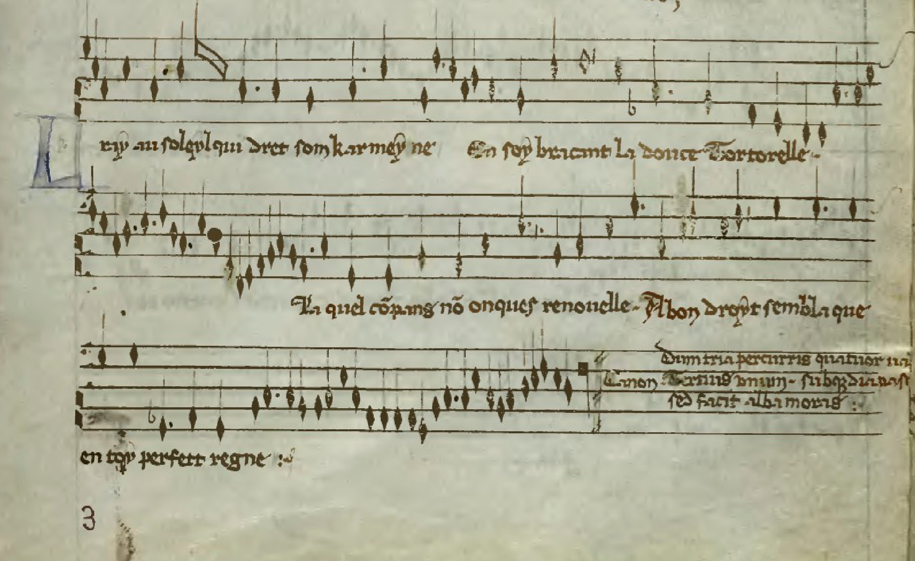 L
ray au soleyl qui dret som karmeyne En soy bracant la douce Tortorelle
La quel cōpang nō onques renouelle - A bon droyt sembla que
Dum tria percurris quatuor ual
Canon Tertius unum - subq3 diapas
sed facit alba moras :
en toy perfect regne :
3